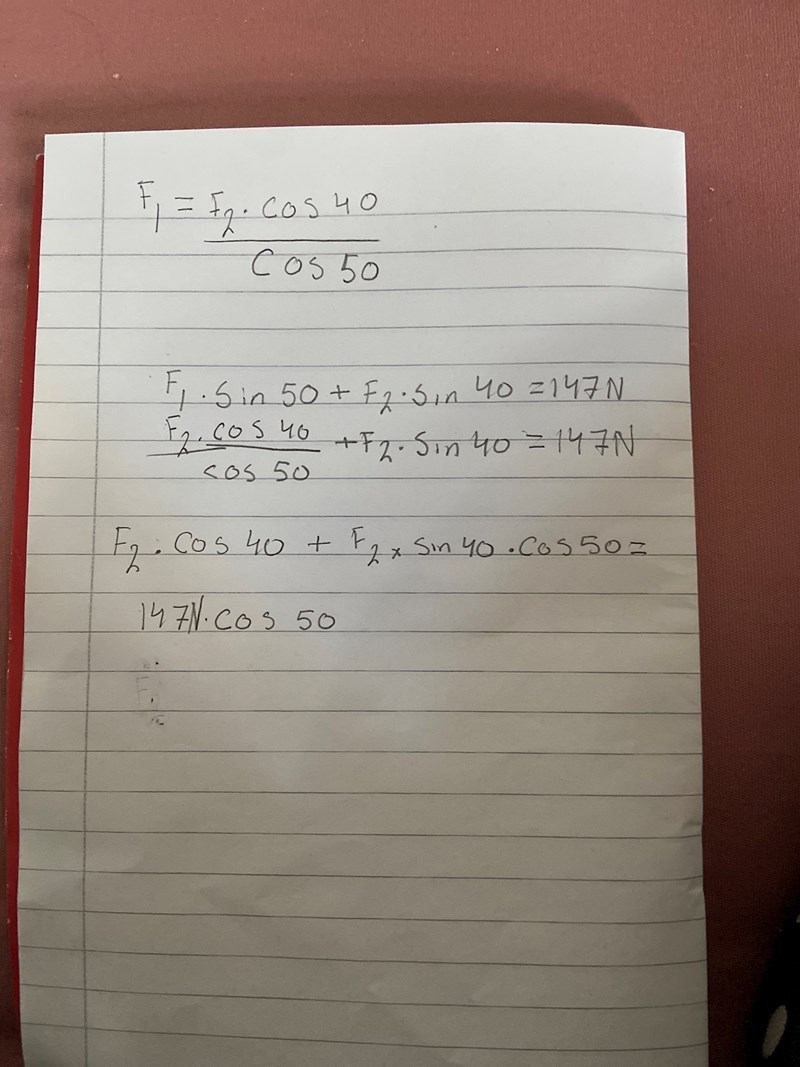 F₁ = F₂ · cos 40
Cos 50
F₁ · Sin 50 + F₂ · Sin 40 = 147N
F₂ · cos 40 + F₂ · Sin 40 = 147N
cos 50
F₂ · Cos 40 + F₂ × Sin 40 · Cos 50 =
147N · Cos 50